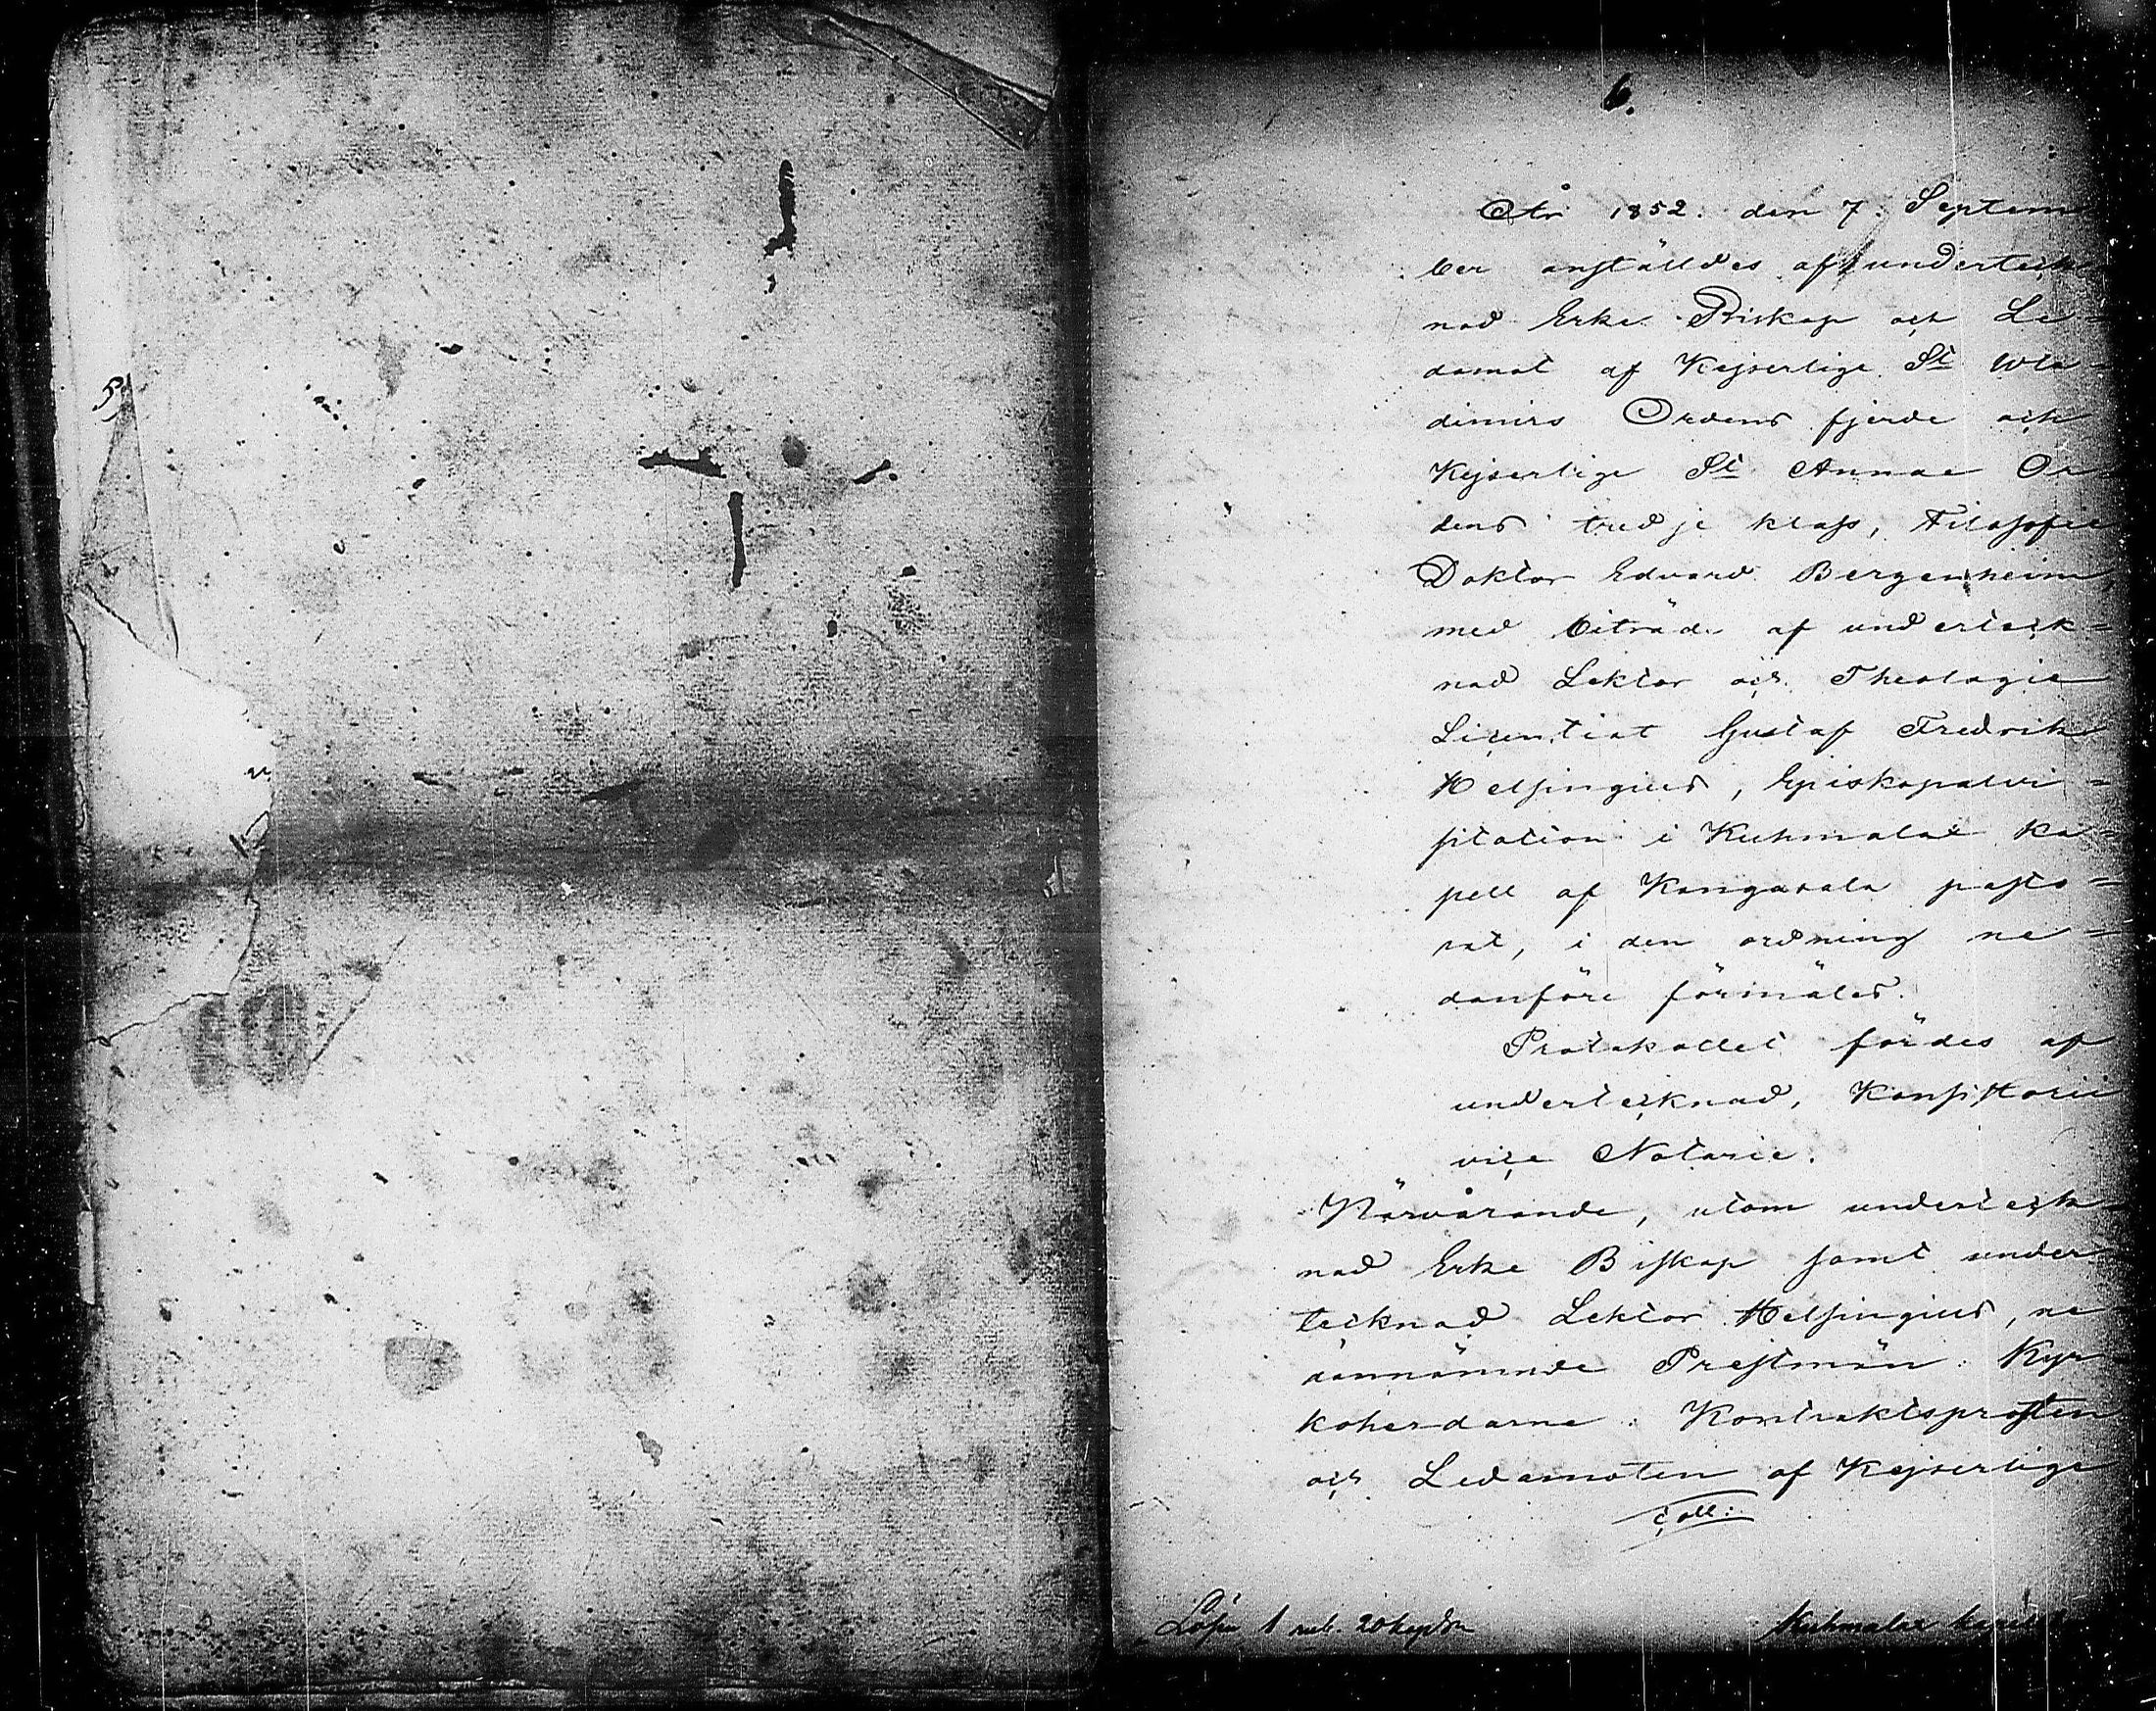 6.
År 1852. den 7. Septem
ber anställdes af underteck
nad Erke Biskop och Le=
damot af Kejserlige St Wla=
dimirs Ordens fjerde och
Kejserlige St Annae Or
dens tredje klass, Filosofie
Doktor Edvard Bergenheim,
med biträde af underteck=
nad Lektor och Theologie
Licentiat Gustaf Fredrik
Helsingius, Episkopalvi=
sitation i Kuhmalax ka=
pell af Kangasala pasto=
rat, i den ordning ne=
danföre förmäles.
Protokollet fördes af
undertecknad, Konsistorii
vice Notarie.
Närvarande, utom underteck
nad Erke Biskop samt under
tecknad Lektor Helsingius, ne
dannämnde Prestmän: Kyr
koherdarne: Kontraktsprosten
och Ledamoten af Kejserlige
Coll:
Lösen 1 rub. 20 kop
Kuhmalax
5